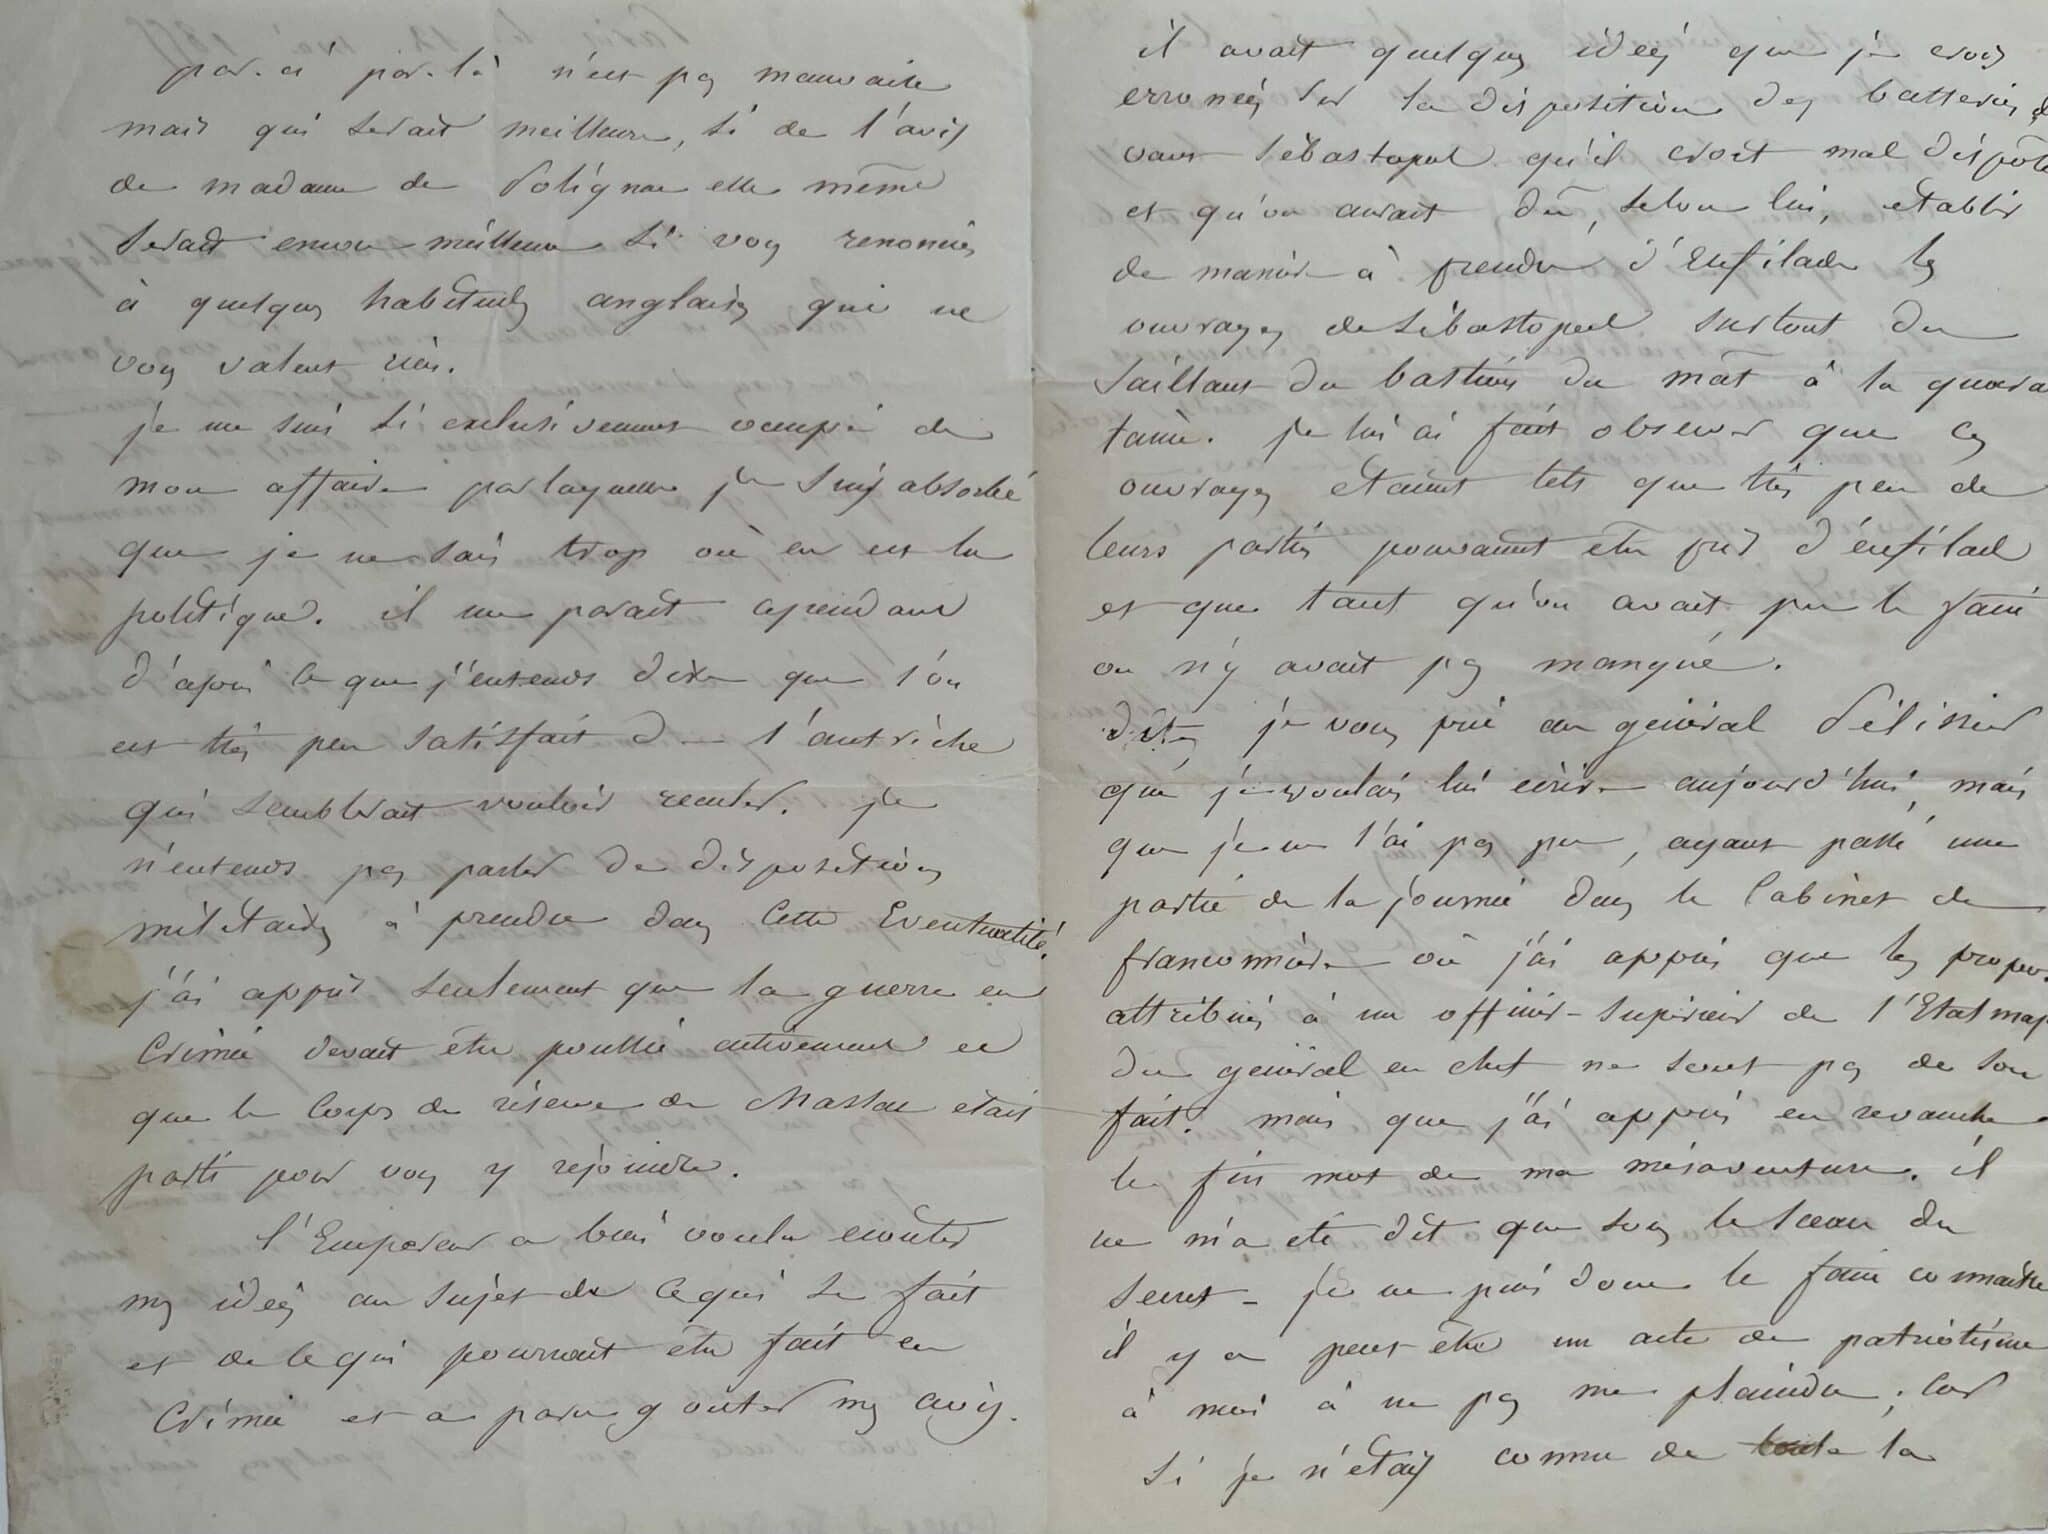 par-ci par-là n'est pas mauvaise
mais qui serait meilleure, si de l'avis
de madame de Polignac elle même
serait encore meilleure si vous renonciez
à quelques habitudes anglaises qui ne
vous valent rien.
je me suis si exclusivement occupé de
mon affaire par laquelle je suis absorbé
que je ne sais trop où en est la
politique. il me parait cependant
d'après ce que j'entends dire que l'on
est très peu satisfait de l'autriche
qui semblerait vouloir reculer. je
n'entends pas parler de dispositions
militaires à prendre dans cette Eventualité.
j'ai appris seulement que la guerre en
Crimée devait être poussée activement et
que le Corps de réserve de Maslac était
parti pour vous y rejoindre.
l'Empereur a bien voulu ecouter
mes idées au sujet de ce qui se fait
et de ce qui pourrait être fait en
Crimée et a paru gouter mes avis.
il avait quelques idées que je crois
erronées sur la disposition des batteries de
vant Sébastopol qu'il croit mal disposé
et qu'on aurait dû, selon lui, etablir
de manière à prendre d'Enfilade les
ouvrages de Sébastopol surtout du
Saillant du bastion du mât à la quaran
taine. je lui ai fait observer que ces
ouvrages etaient tels que très peu de
leurs parties pouvaient être pris d'énfilade
et que tant qu'on avait pu le faire
on n'y avait pas manqué.
dites je vous prie au général Pélissier
que je voulais lui ecrire aujourd'hui, mais
que je ne l'ai pas pu, ayant passé une
partie de la journée dans le Cabinet de
franconnière où j'ai appris que les propos
attribués à un officier-supérieur de l'Etat maj
du général en chef ne sont pas de son
fait. mais que j'ai appris en revanche
le fin mot de ma mésaventure. il
ne m'a eté dit que sous le sceau du
secret - je ne puis donc le faire connaitre
il y a peut-être un acte de patriotisme
à moi à ne pas me plaindre ; Car
si je n'étais connu de la